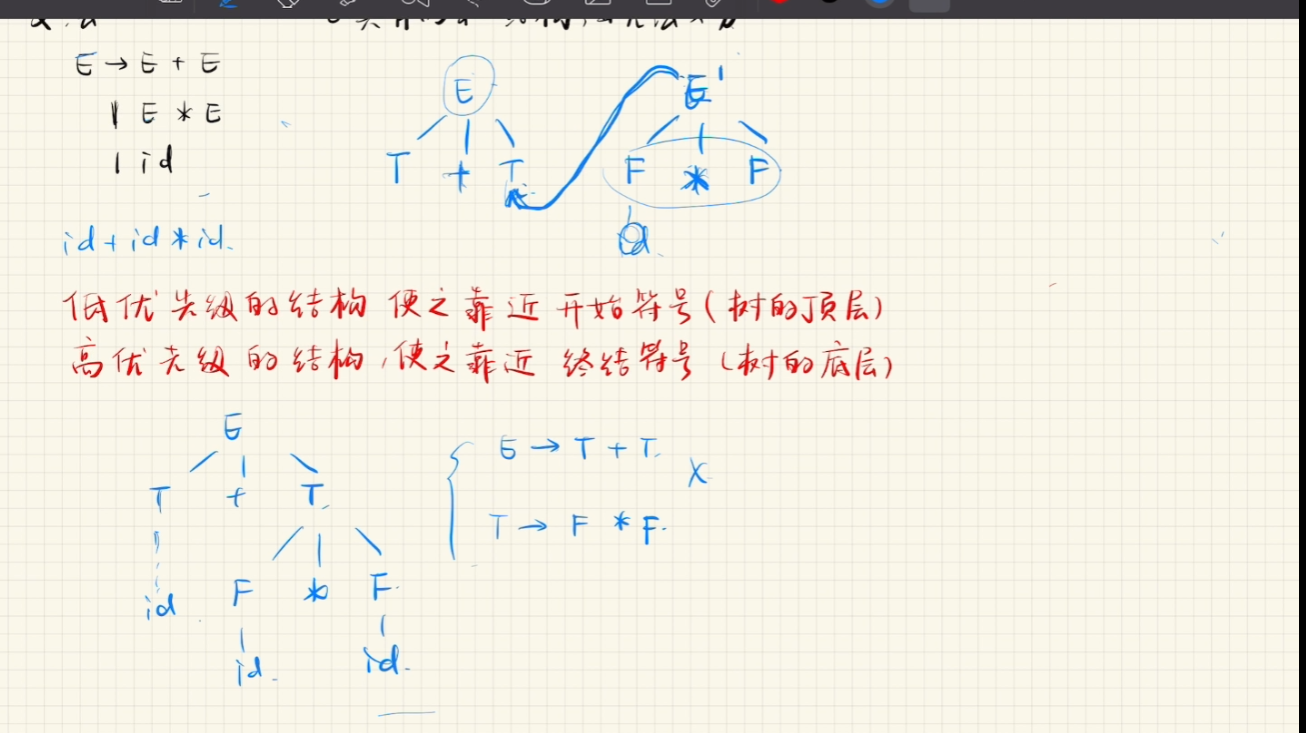 E → E + E
| E * E
| id
id + id * id.
E
T + T
E'
F * F
id.
低优先级的结构 使之靠近 开始符号(树的顶层)
高优先级的结构,使之靠近 终结符号(树的底层)
E
T + T.
id F * F.
id. id.
E → T + T.
X
T → F * F.